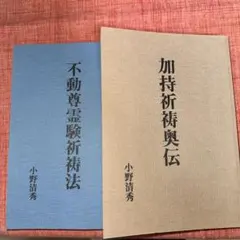 加持祈祷奥伝
小野清秀
不動尊霊験祈祷法
小野清秀